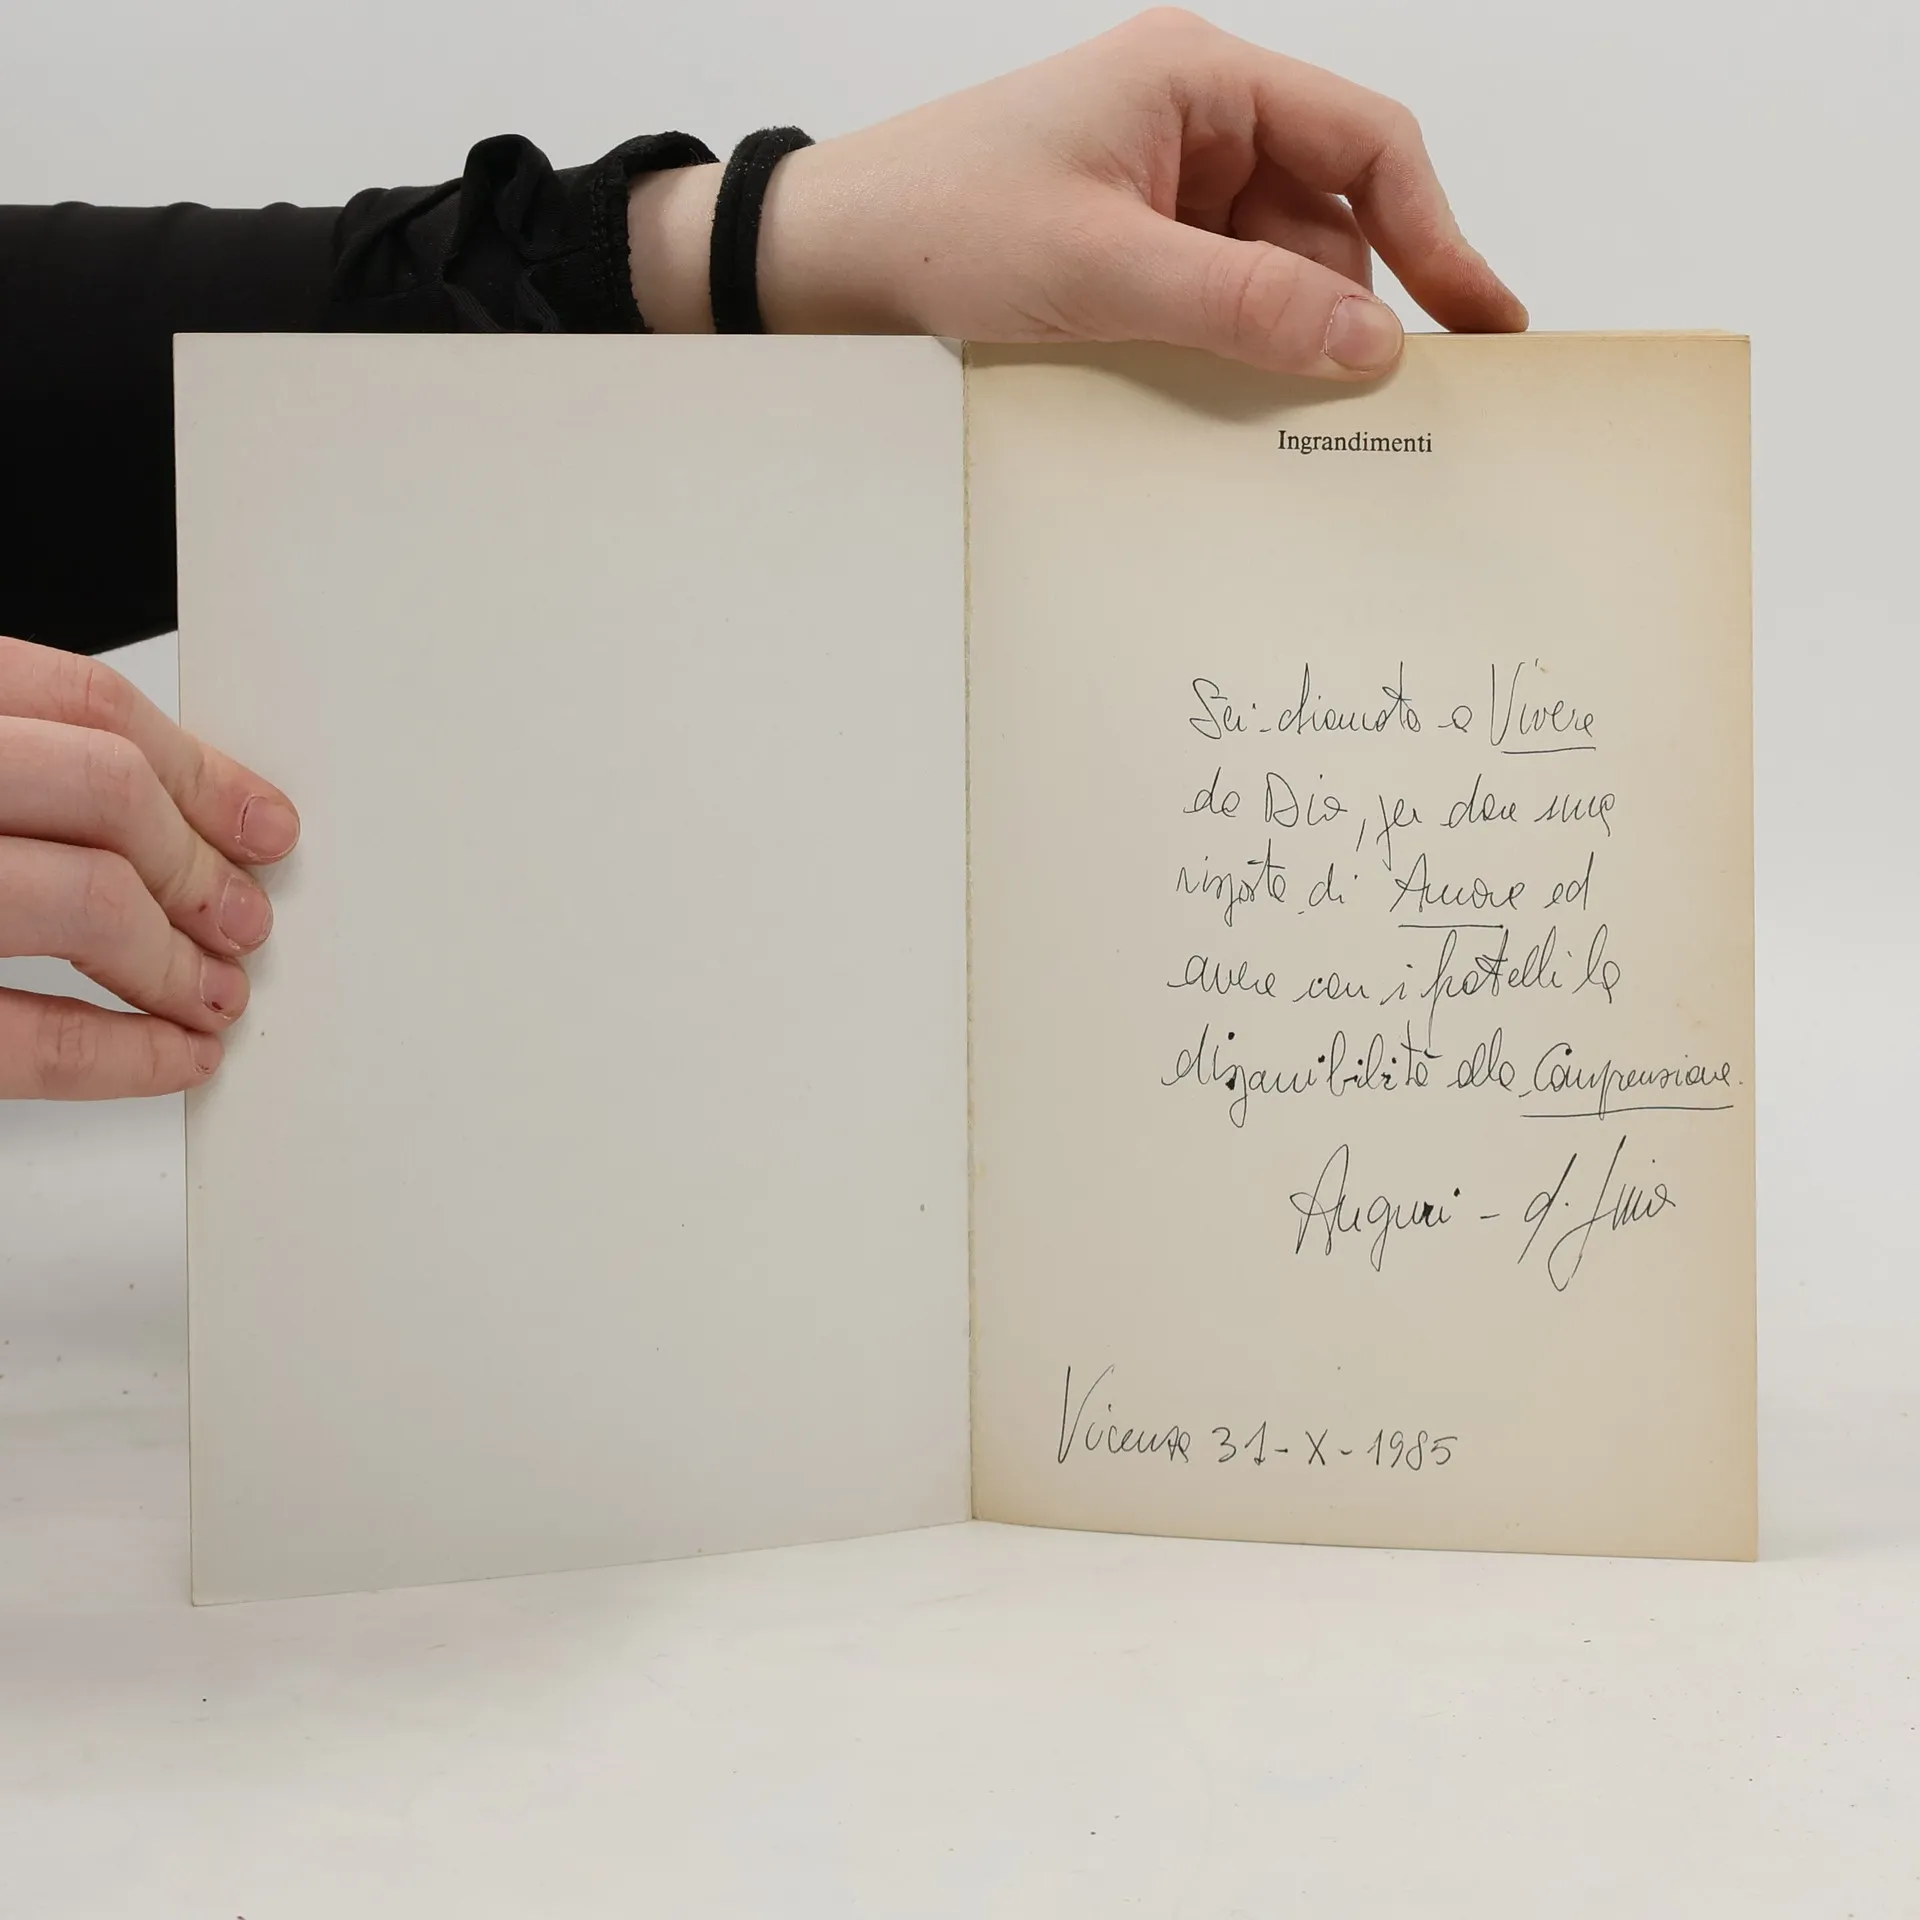 Ingrandimenti
Sei chiamato a Vivere
da Dio, per dare una
risposta di Amore ed
avere con i fratelli la
disponibilità alla Comprensione.
Auguri - d.
Vicenza 31-X-1985